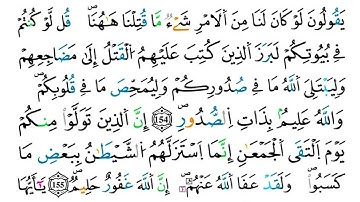 يَقُولُونَ لَوْ كَانَ لَنَا مِنَ الْأَمْرِ شَيْءٌ مَّا قُتِلْنَا هَاهُنَا ۗ قُل لَّوْ كُنتُمْ
فِي بُيُوتِكُمْ لَبَرَزَ الَّذِينَ كُتِبَ عَلَيْهِمُ الْقَتْلُ إِلَىٰ مَضَاجِعِهِمْ ۖ
وَلِيَبْتَلِيَ اللَّهُ مَا فِي صُدُورِكُمْ وَلِيُمَحِّصَ مَا فِي قُلُوبِكُمْ ۗ
وَاللَّهُ عَلِيمٌ بِذَاتِ الصُّدُورِ ﴿154﴾ إِنَّ الَّذِينَ تَوَلَّوْا مِنكُمْ
يَوْمَ الْتَقَى الْجَمْعَانِ إِنَّمَا اسْتَزَلَّهُمُ الشَّيْطَانُ بِبَعْضِ مَا
كَسَبُوا ۖ وَلَقَدْ عَفَا اللَّهُ عَنْهُمْ ۗ إِنَّ اللَّهَ غَفُورٌ حَلِيمٌ ﴿155﴾ يَا أَيُّهَا